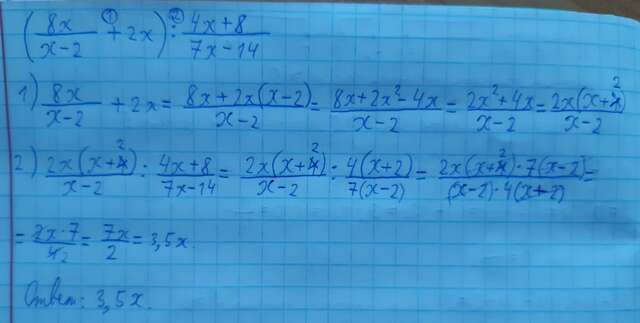 (8x/(x-2) +① 2x) :② (4x+8)/(7x-14)
1) 8x/(x-2) + 2x = (8x+2x(x-2))/(x-2) = (8x+2x²-4x)/(x-2) = (2x²+4x)/(x-2) = 2x(x+2)/(x-2)
2) 2x(x+2)/(x-2) : (4x+8)/(7x-14) = 2x(x+2)/(x-2) : 4(x+2)/7(x-2) = 2x(x+2)·7(x-2)/(x-2)·4(x+2) =
= 2x·7/4 2 = 7x/2 = 3,5x.
Ответ: 3,5x.